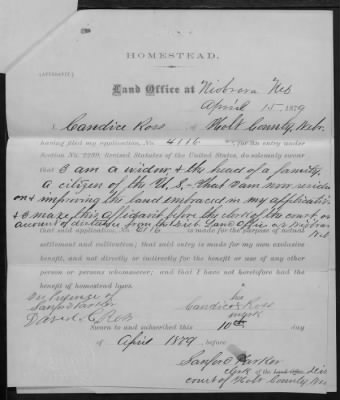 HOMESTEAD.
(AFFIDAVIT.)
Land Office at Niobrara Neb
April 15, 1879
I, Candice Ross of Holt County, Nebr.
having filed my application, No. 4116 for an entry under
Section No. 2289, Revised Statutes of the United States, do solemnly swear
that I am a widow & the head of a family,
a citizen of the U.S. - that I am now residing
on & improving the land embraced in my application
& I make this affidavit before the clerk of the court on
account of distance from the Land Office at Niobrara
Neb
that said application, No. 4116 is made for the purpose of actual
settlement and cultivation; that said entry is made for my own exclusive
benefit, and not directly or indirectly for the benefit or use of any other
person or persons whomsoever; and that I have not heretofore had the
benefit of homestead laws.
In presence of
Sanford Parker
David Ross
his
Candice Ross
mark
Sworn to and subscribed this 10th day
of April 1879 before
Sanford Parker
clerk of the Land Office, Dis
court of Holt County, Neb